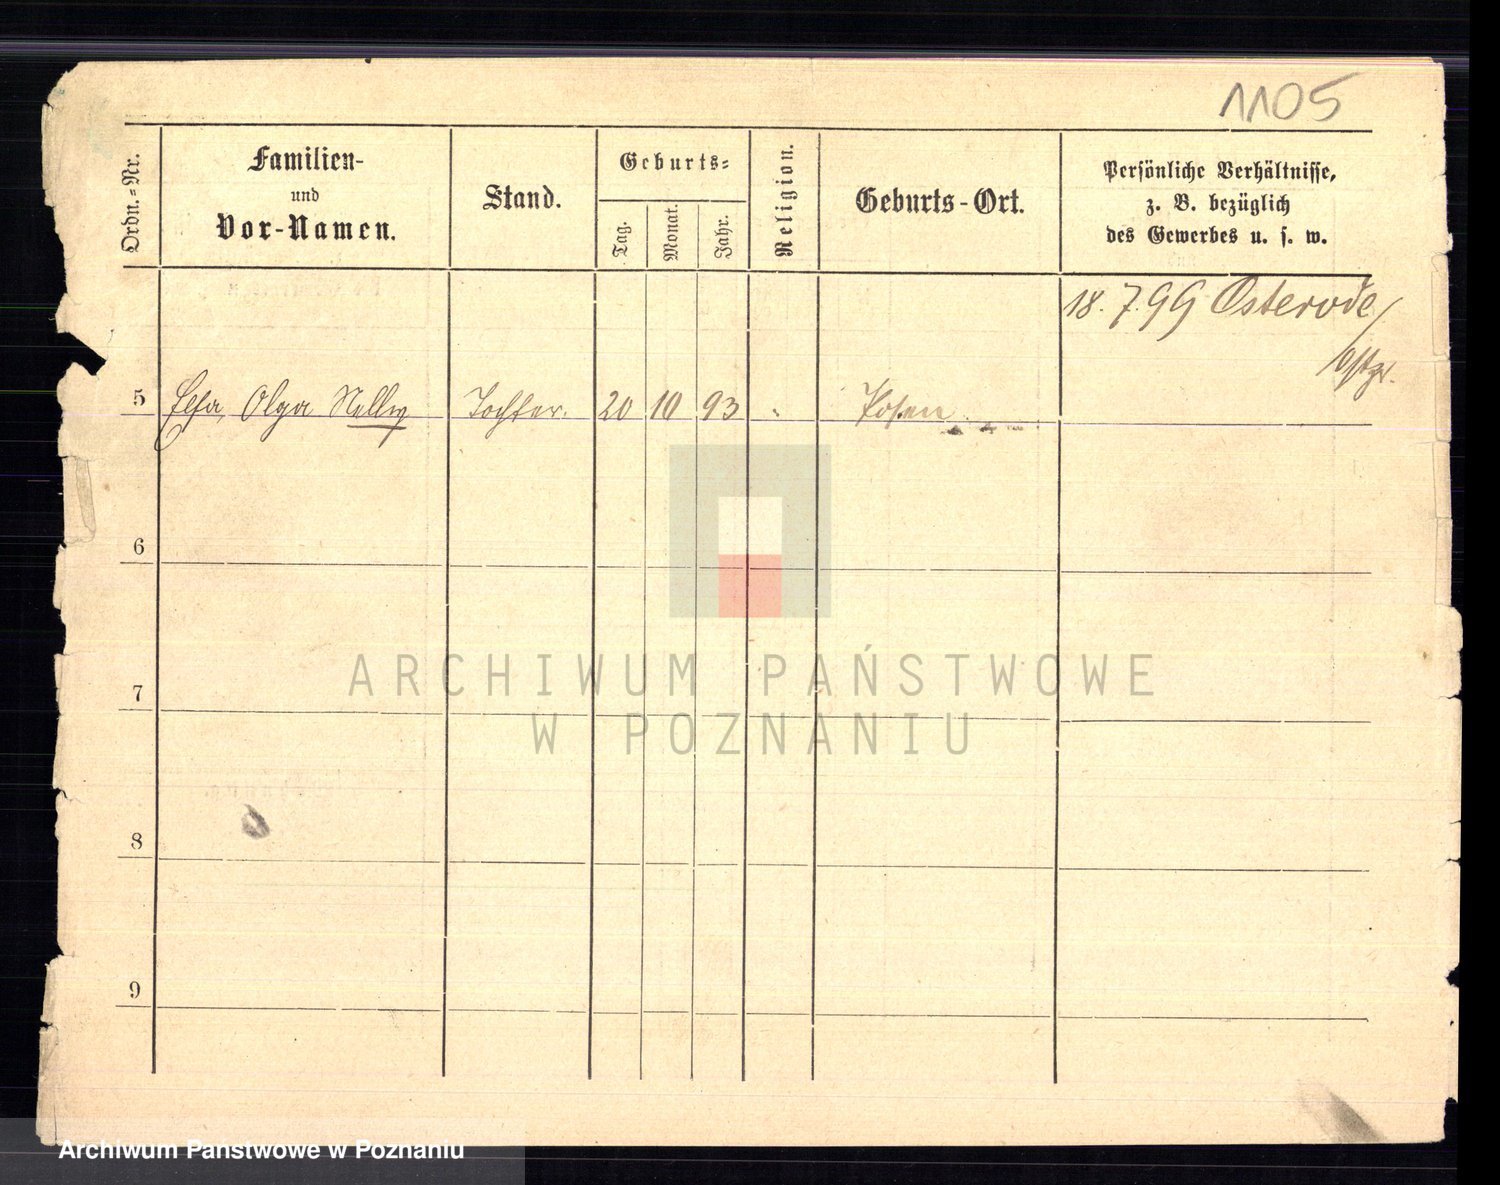 1105
Ordn.-Nr.
Familien-
und
Vor-Namen.
Stand.
Geburts-
Tag.
Monat.
Jahr.
Religion.
Geburts-Ort.
Persönliche Verhältnisse,
z. B. bezüglich
des Gewerbes u. s. w.
18. 7. 99 Osterode/
Ostpr.
5 Elsa, Olga Nelly Tochter. 20 10 93 " Posen
6
7
8
9
ARCHIWUM PAŃSTWOWE
W POZNANIU
Archiwum Państwowe w Poznaniu